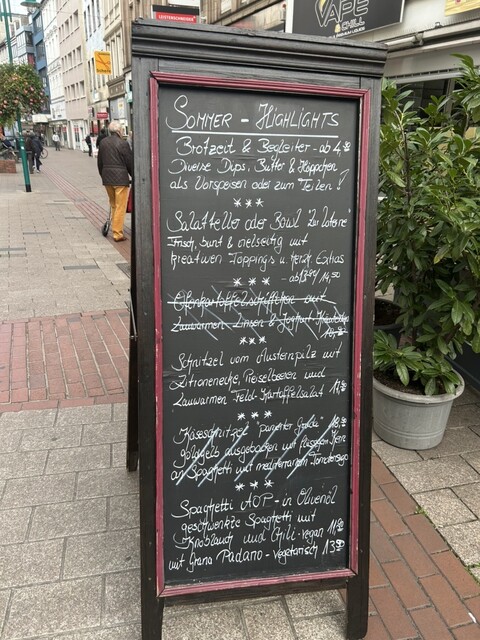 VAPE
& CHILL
LEISTENSCHNEIDER
SOMMER - HIGHLIGHTS
Brotzeit & Begleiter - ab 4,90
Diverse Dips, Butter & Häppchen
als Vorspeisen oder zum Teilen!
***
Salatteller oder Bowl
Frisch, bunt & vielseitig mit
kreativen Topping's u. herzh. Extras
- ab 13,90/14,50
***
Ofenkartoffelschiffchen auf
Lauwarmen Linsen & Joghurt-
***
Schnitzel vom Austernpilz mit
Zitronenecke, Preiselbeeren und
Lauwarmen Feld-Kartoffelsalat 17,50
***
Käseschnitzel "panierter Gouda"
goldgelb ausgebacken mit flüssigen Kern
an Spaghetti mit mediterranem
***
Spaghetti AOP - in Olivenöl
geschwenkte Spaghetti mit
Knoblauch und Chili - vegan 11,90
mit Grana Padano - vegetarisch 13,90